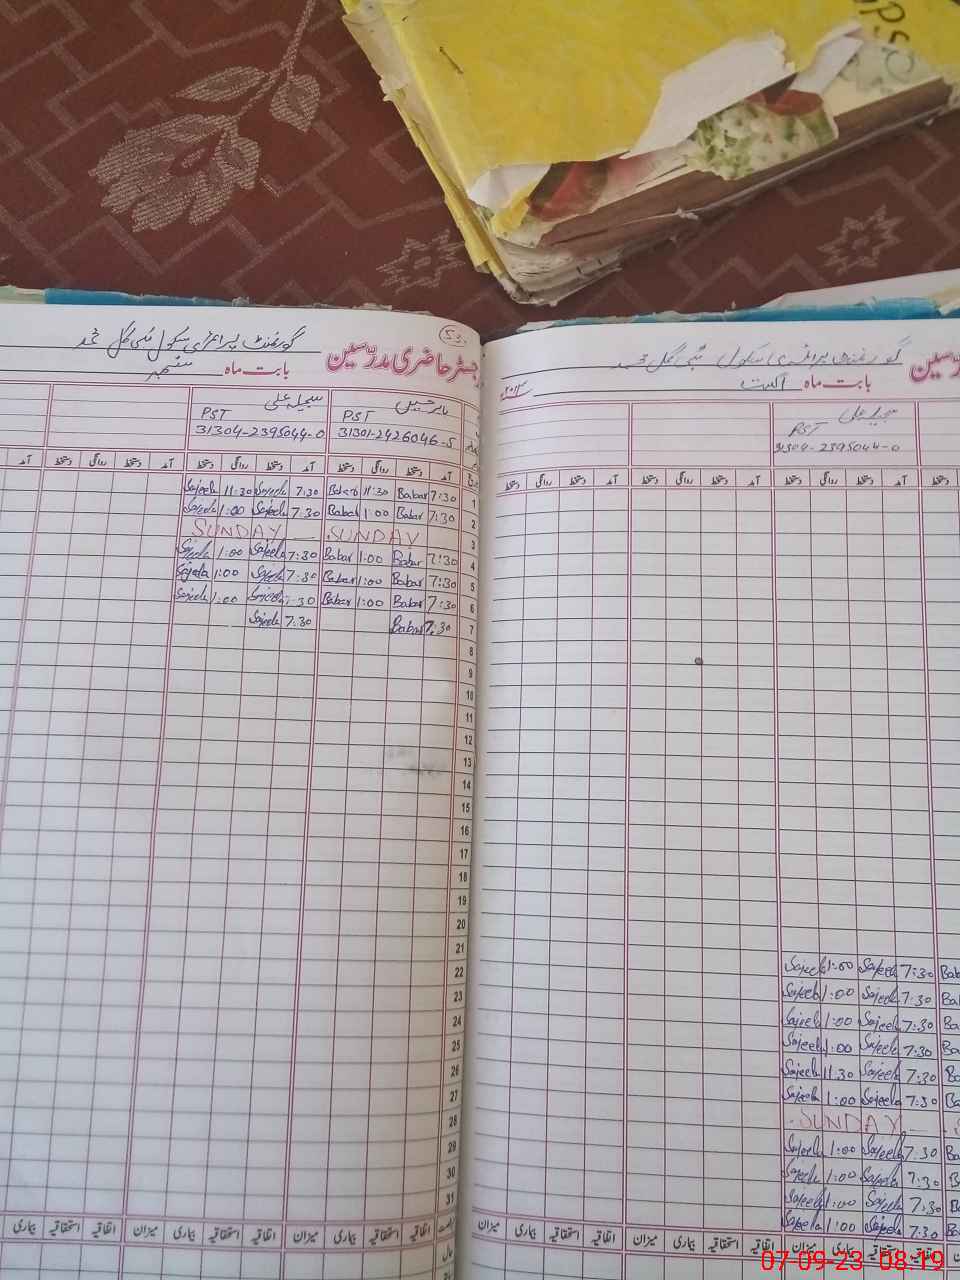 PST
53
گورنمنٹ پرائمری سکول بستی گل محمد
رجسٹر حاضری مدرّسین
بابت ماہ ستمبر
بابر حسین
PST
31301-2426046-5
سجیلہ علی
PST
31304-2395044-0
آمد دستخط روانگی دستخط آمد دستخط روانگی دستخط آمد دستخط روانگی دستخط آمد
1 7:30 Babar 11:30 Babar 7:30 Sajeela 11:30 Sajeela
2 7:30 Babar 1:00 Babar 7:30 Sajeela 1:00 Sajeela
3 SUNDAY SUNDAY
4 7:30 Babar 1:00 Babar 7:30 Sajeela 1:00 Sajeela
5 7:30 Babar 1:00 Babar 7:30 Sajeela 1:00 Sajeela
6 7:30 Babar 1:00 Babar 7:30 Sajeela 1:00 Sajeela
7 7:30 Babar 7:30 Sajeela
8
9
10
11
12
13
14
15
16
17
18
19
20
21
22
23
24
25
26
27
28
29
30
31
اتفاقیہ استحقاقیہ بیماری میزان اتفاقیہ استحقاقیہ بیماری میزان اتفاقیہ استحقاقیہ بیماری
گورنمنٹ پرائمری سکول بستی گل محمد
بابت ماہ اگست
سجیلہ علی
PST
31304-2395044-0
دستخط آمد دستخط روانگی دستخط آمد دستخط روانگی دستخط آمد دستخط روانگی دستخط
7:30 Sajeela 1:00 Sajeela
7:30 Sajeela 1:00 Sajeela
7:30 Sajeela 1:00 Sajeela
7:30 Sajeela 1:00 Sajeela
7:30 Sajeela 11:30 Sajeela
7:30 Sajeela 1:00 Sajeela
SUNDAY
7:30 Sajeela 1:00 Sajeela
7:30 Sajeela 1:00 Sajeela
7:30 Sajeela 1:00 Sajeela
7:30 Sajeela 1:00 Sajeela
اتفاقیہ استحقاقیہ بیماری میزان اتفاقیہ استحقاقیہ بیماری میزان اتفاقیہ استحقاقیہ بیماری میزان
07-09-23 08:19